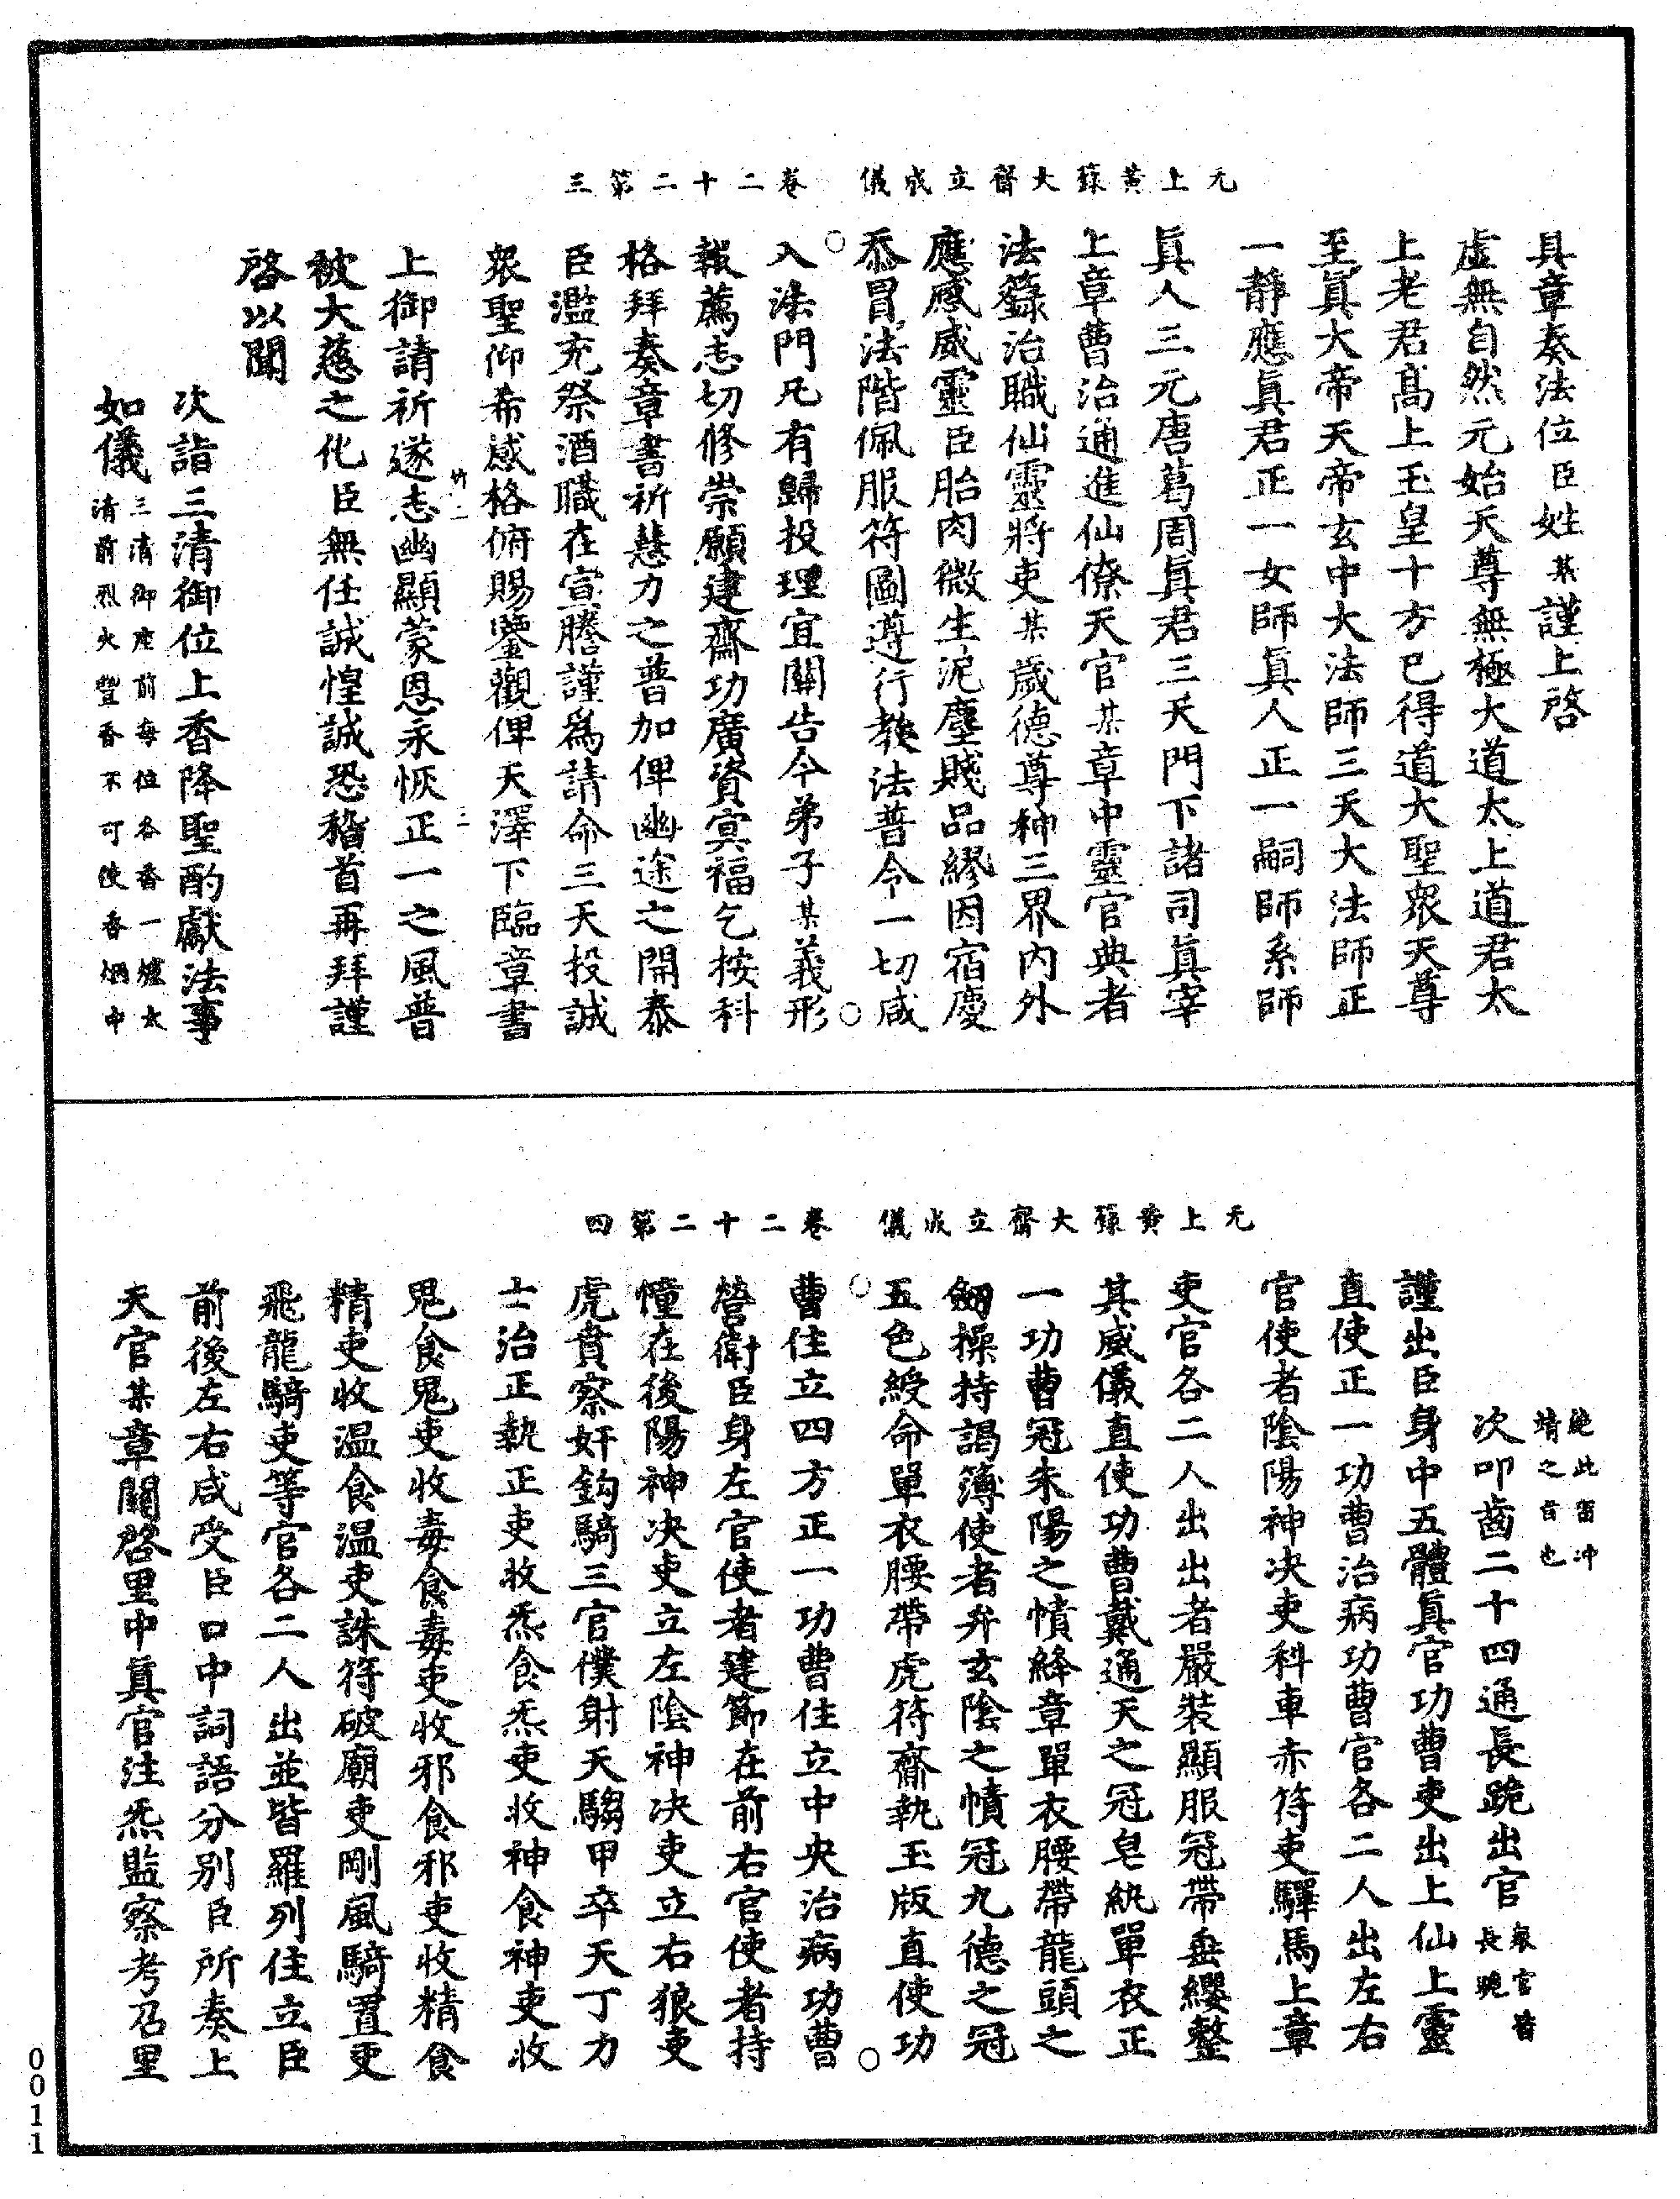 无上黃籙大齋立成儀　卷二十二第三
具章奏法位臣姓某謹上啓
虛無自然元始天尊無極大道太上道君太
上老君高上玉皇十方已得道大聖衆天尊
至眞大帝天帝玄中大法師三天大法師正
一靜應眞君正一女師眞人正一嗣師系師
眞人三元唐葛周眞君三天門下諸司眞宰
上章曹治通進仙僚天官某章中靈官典者
法籙治職仙靈將吏某歲德尊神三界內外
應感威靈臣胎肉微生泥塵賤品繆因宿慶
忝冒法階佩服符圖遵行教法普令一切咸
入法門凡有歸投理宜關告今弟子某義形
報薦志切修崇願建齋功廣資冥福乞按科
格拜奏章書祈慧力之普加俾幽途之開泰
臣濫充祭酒職在宣謄謹爲請命三天投誠
衆聖仰希感格俯賜鑒觀俾天澤下臨章書
竹二　三
上御請祈遂志幽顯蒙恩永恢正一之風普
被大慈之化臣無任誠惶誠恐稽首再拜謹
啓以聞
次詣三清御位上香降聖酌獻法事
如儀三清御座前每位各香一爐太
清前烈火豐香不可使香煙中
无上黃籙大齋立成儀　卷二十二第四
絕此當沖
靖之旨也
次叩齒二十四通長跪出官衆官皆
長跪
謹出臣身中五體眞官功曹吏出上仙上靈
直使正一功曹治病功曹官各二人出左右
官使者陰陽神決吏科車赤符吏驛馬上章
吏官各二人出出者嚴裝顯服冠帶垂纓整
其威儀直使功曹戴通天之冠皂紈單衣正
一功曹冠朱陽之幘絳章單衣腰帶龍頭之
劒操持謁簿使者弁玄陰之幘冠九德之冠
五色綬命單衣腰帶虎符齋執玉版直使功
曹住立四方正一功曹住立中央治病功曹
營衛臣身左官使者建節在前右官使者持
幢在後陽神決吏立左陰神決吏立右狼吏
虎賁察奸鈎騎三官僕射天騶甲卒天丁力
士治正執正吏收炁食炁吏收神食神吏收
鬼食鬼吏收毒食毒吏收邪食邪吏收精食
精吏收溫食溫吏誅符破廟吏剛風騎置吏
飛龍騎吏等官各二人出並皆羅列住立臣
前後左右咸受臣口中詞語分別臣所奏上
天官某章關啓里中眞官注炁監察考召里
0011